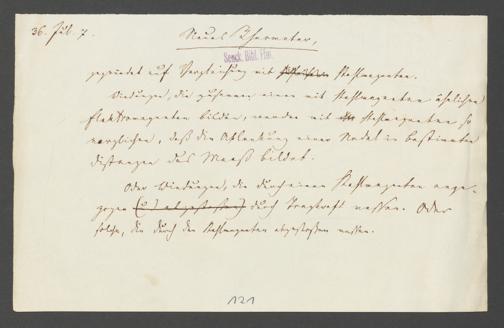 36. Juli 7.
Neues Rheometer,
Senck. Bibl. Ffm.
gegründet auf Vergleichung mit Stahlmagneten.
Windungen, die zusammen einen mit Stahlmagneten ähnlichen
Elektromagneten bilden, werden mit Stahlmagneten so
verglichen, daß die Ablenkung einer Nadel in bestimmten
Distanzen das Maaß bildet.
Oder Windungen, die durch einen Stahlmagneten ange-
zogen (od. abgestoßen) durch Tragkraft messen. Oder
solche, die durch den Stahlmagneten abgestoßen messen.
121